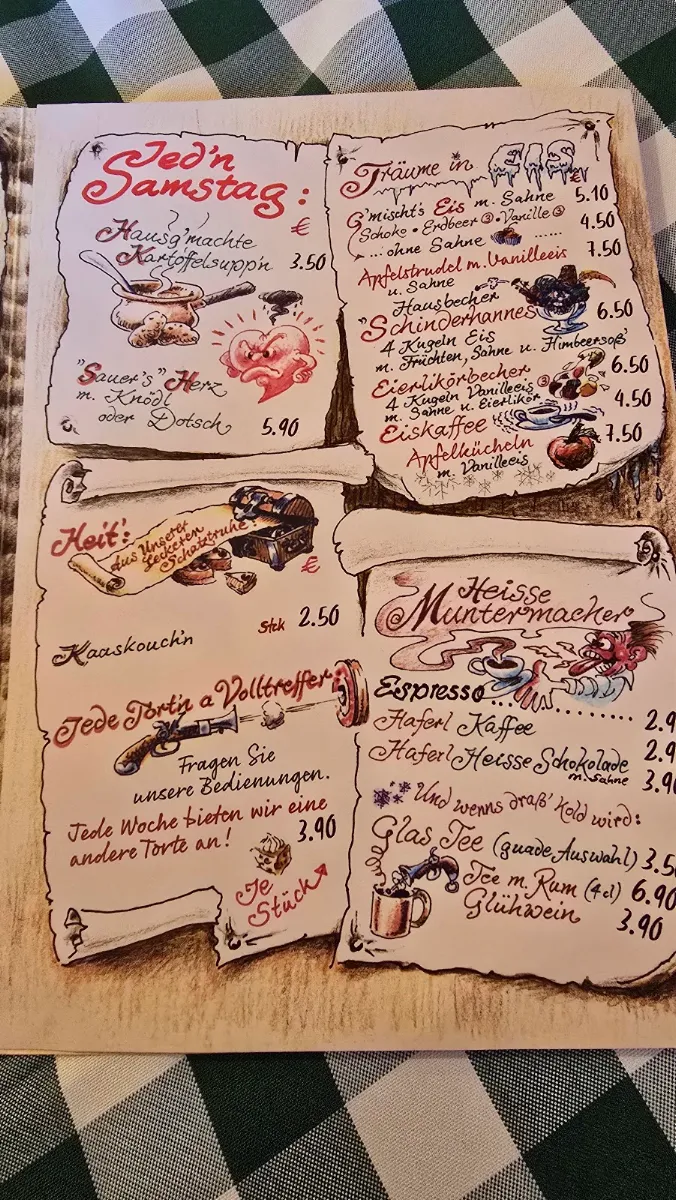 Jed'n
Samstag:
€
Hausg'machte
Kartoffelsupp'n 3.50
"Sauer's" Herz
m. Knödl
oder Dotsch 5.90
Träume in EIS
€
G'mischt's Eis m. Sahne 5.10
Schoko • Erdbeer ③ • Vanille ③
... ohne Sahne ...... 4.50
Apfelstrudel m. Vanilleeis 7.50
u. Sahne
Hausbecher
"Schinderhannes" 6.50
4 Kugeln Eis
m. Früchten, Sahne u. Himbeersoß'
Eierlikörbecher 6.50
4 Kugeln Vanilleeis ③
m. Sahne u. Eierlikör
Eiskaffee 4.50
Apfelkücheln 7.50
m. Vanilleeis
Heit':
aus unserer
leckeren
Schatztruhe
€
Kaaskouch'n Stck 2.50
Jede Tort'n a Volltreffer:
Fragen Sie
unsere Bedienungen.
Jede Woche bieten wir eine
andere Torte an! 3.90
Je
Stück
Heisse
Muntermacher
Espresso.................. 2.9
Haferl Kaffee 2.9
Haferl Heisse Schokolade 3.90
m. Sahne
Und wenns draß' kold wird:
Glas Tee (guade Auswahl) 3.5
Tee m. Rum (4 cl) 6.90
Glühwein 3.90